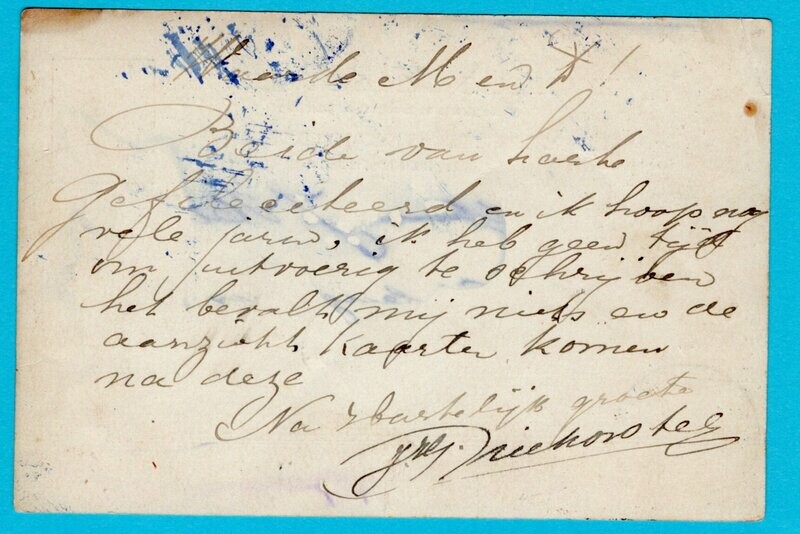 Waarde M en A!
Beide van harte
gefeleciteerd en ik hoop nog
vele jaren, ik heb geen tijd
om uitvoerig te schrijven
het bevalt mij niets en de
aanzicht kaarten komen
na deze
Na hartelijk groete